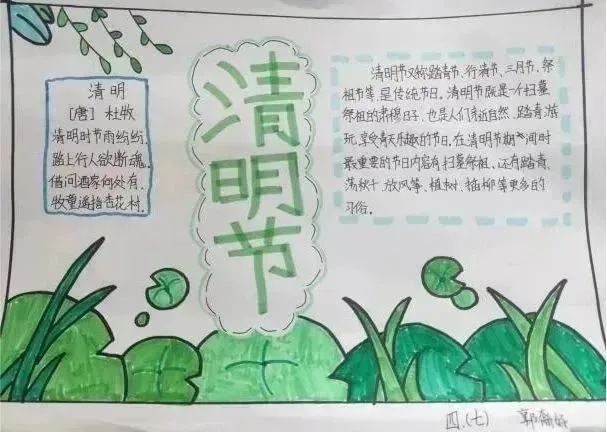 清明
[唐] 杜牧
清明时节雨纷纷,
路上行人欲断魂,
借问酒家何处有,
牧童遥指杏花村.
清明节
清明节又称踏青节、行清节、三月节、祭
祖节等,是传统节日。清明节既是一个扫墓
祭祖的肃穆日子,也是人们亲近自然、踏青游
玩、享受春天乐趣的节日.在清明节期间时
最重要的节日内容有扫墓祭祖、还有踏青、
荡秋千、放风筝、植树、插柳等更多的
习俗。
四.(七) 郭